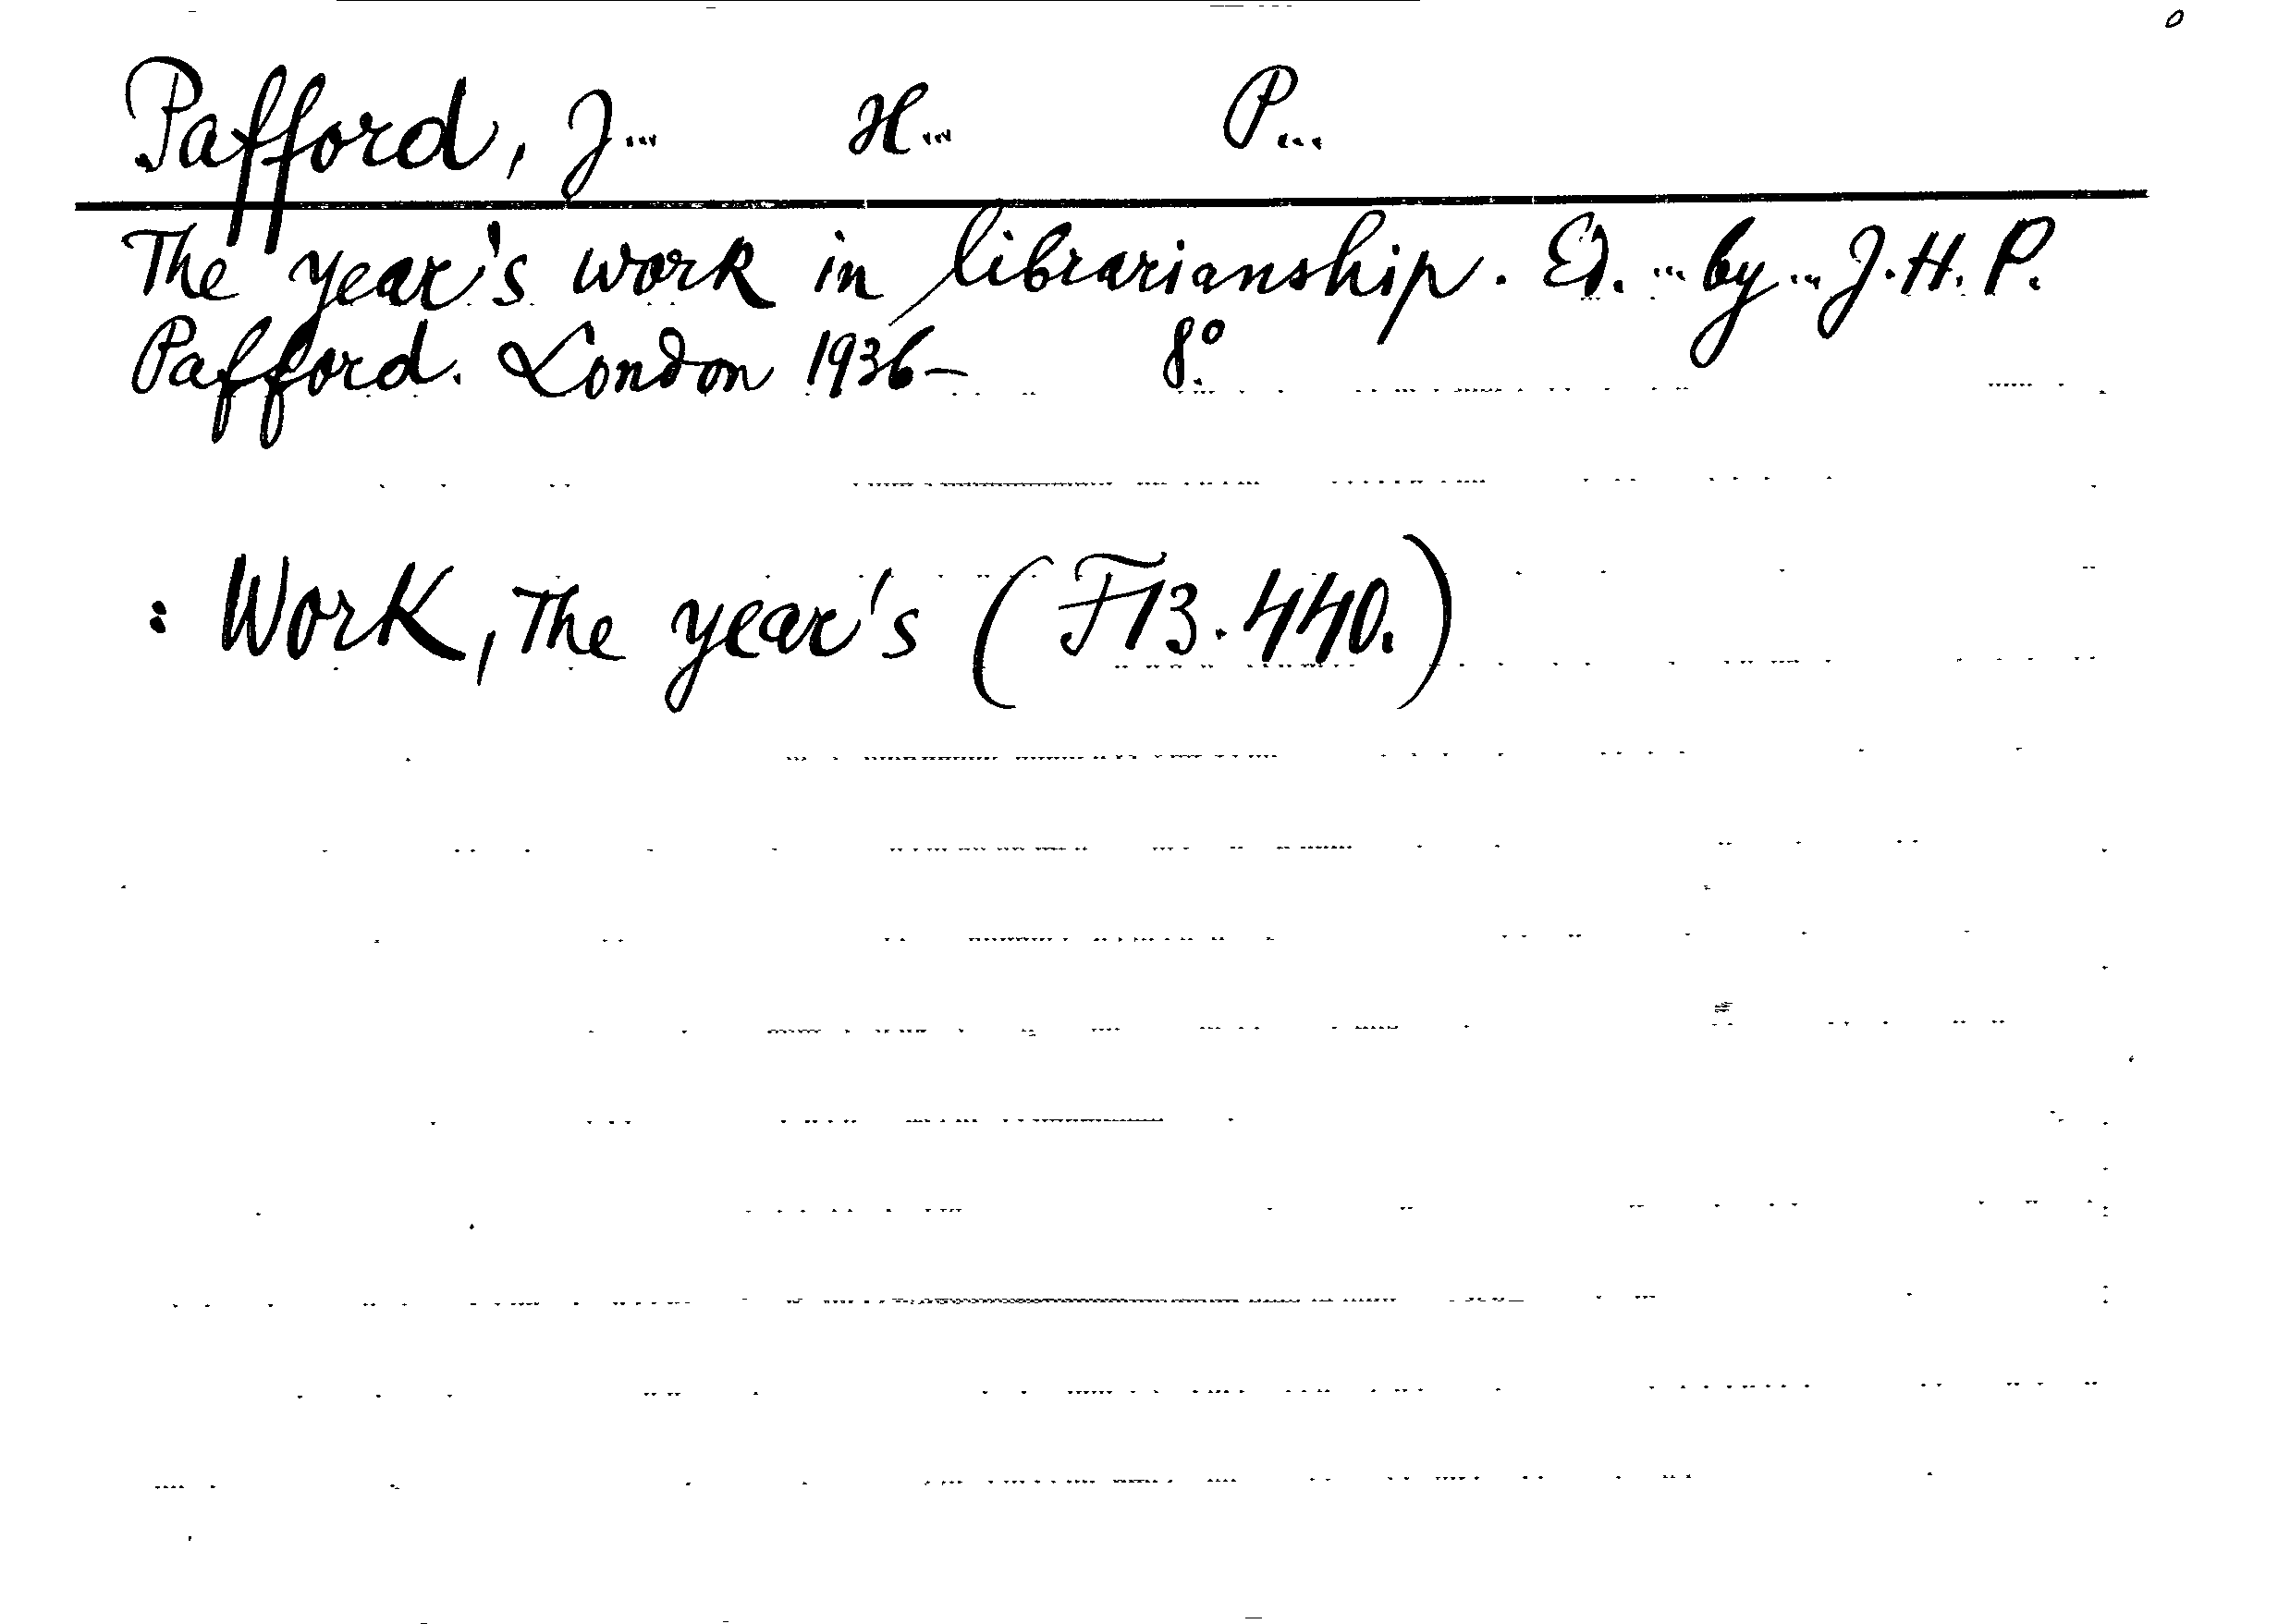 Pafford, J... H... P...
The year's work in librarianship. Ed. ... by ... J. H. P.
Pafford. London 1936– 8°.
: Work, The year's (F13.440.)